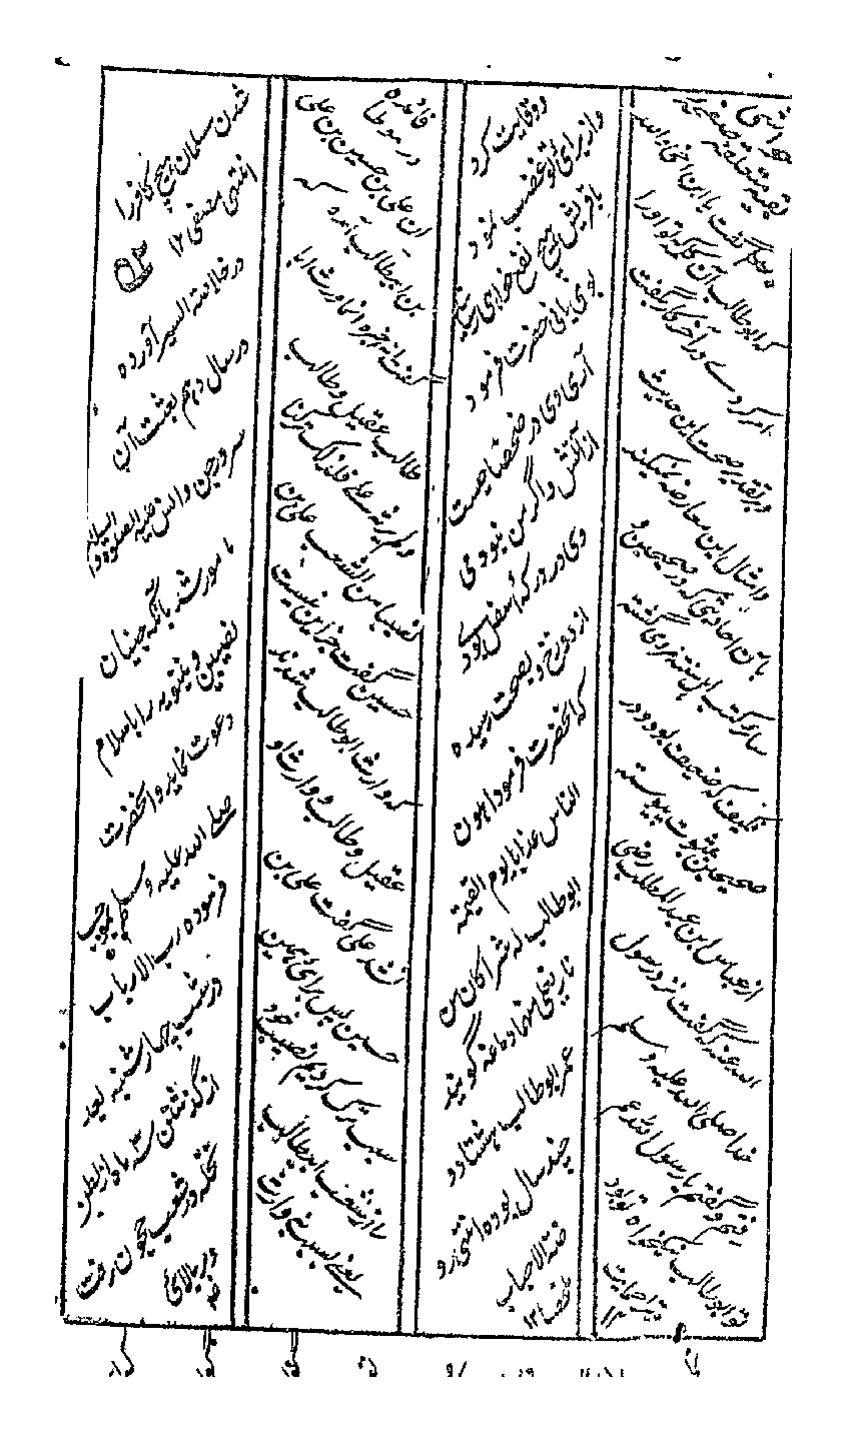 بقیه متعلقه صفحه
گفت یا ابن اخی والله
ابوطالب آن کلمه که تو اورا
امر کردے در آخر کار بگفت
بر تقدیر صحت این حدیث
وامثال این معارضه نمیکند
بآن احادیثی که در صحیحین و
سائر کتب اهل سنت
ضعیف بود و در
صحیحین بثبوت پیوسته
از عباس ابن عبدالمطلب رضی
الله عنه که گفت نزد رسول
خدا صلی الله علیه وسلم
رفتم و گفتم یا رسول الله عم
تو ابوطالب نیکخواه تو بود
و ترا حمایت
۱۲
و وقایت کرد
و از برای تو غضب نمود
با قریش هیچ نفع خواهی رساند
بوی یا نی حضرت فرمود
آری وی در ضحضاحیست
از آتش و اگر من نبودمی
وی در درکهٔ اسفل بودے
از دوزخ و بصحت رسیده
که آنحضرت فرمود اهون
الناس عذابا یوم القیمة
ابوطالب له شراکان من
نار یغلی منهما دماغه گویند
عمر ابوطالب هشتاد و
چند سال بوده انتهی رو
ضة الاحباب
۱۲
فائده
در موطا
ان علی بن حسین بن علی
بن ابیطالب آمده که
گفت انه اخبره انما ورث ابا
طالب عقیل وطالب
ولم یرثه علی فلذلک ترکنا
نصیبنا من الشعب علی بن
حسین گفت جز این نیست
که وارث ابوطالب شدند
عقیل وطالب و وارث او
نشد علی گفت علی بن
حسین پس برای همین
سبب ترک کردیم نصیب خود
را از شعب ابیطالب
یعنے بسبب نے وارث
شدن مسلمان هیچ کافر را
انتهی مصفی ۱۲
در خلاصة السیر آورده
در سال دهم بعثت آن
سرور جن و انس علیه الصلوة والسلام
مامور شد بآنکه جنیان
نصیبین و نینویه را باسلام
دعوت نماید و آنحضرت
صلی الله علیه وسلم بموجب
فرموده رب الارباب
در شب چهارشنبه بعد
از گذشتن سه ماه از بطن
نخله در شعب حجون رفت
و بر بالائی